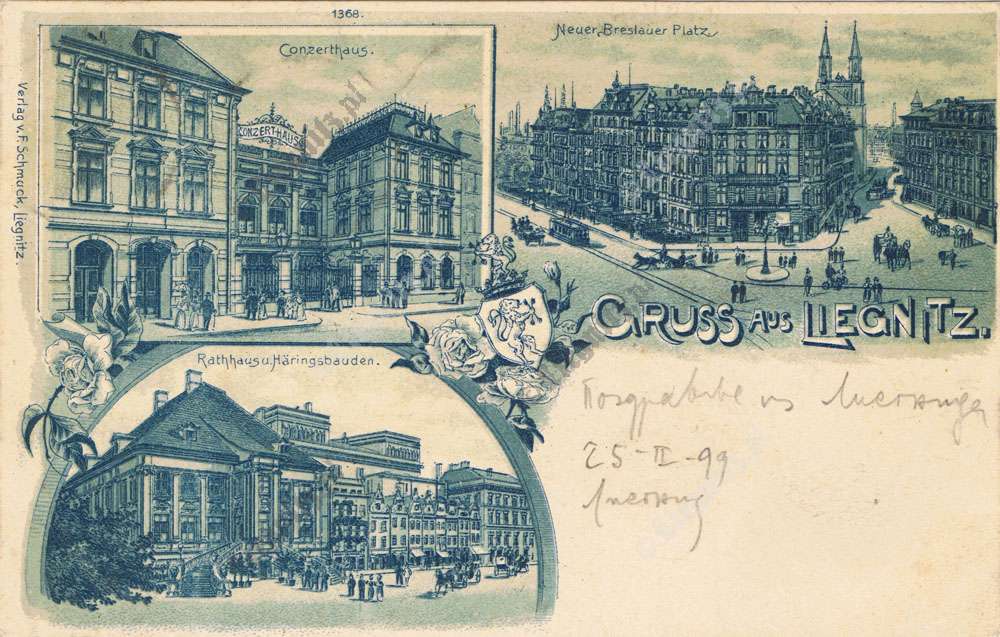 1368.
Conzerthaus.
CONZERTHAUS
Neuer Breslauer Platz.
Verlag v. F. Schmuck, Liegnitz.
GRUSS AUS LIEGNITZ.
Rathhaus u. Häringsbauden.
из
25-II-99